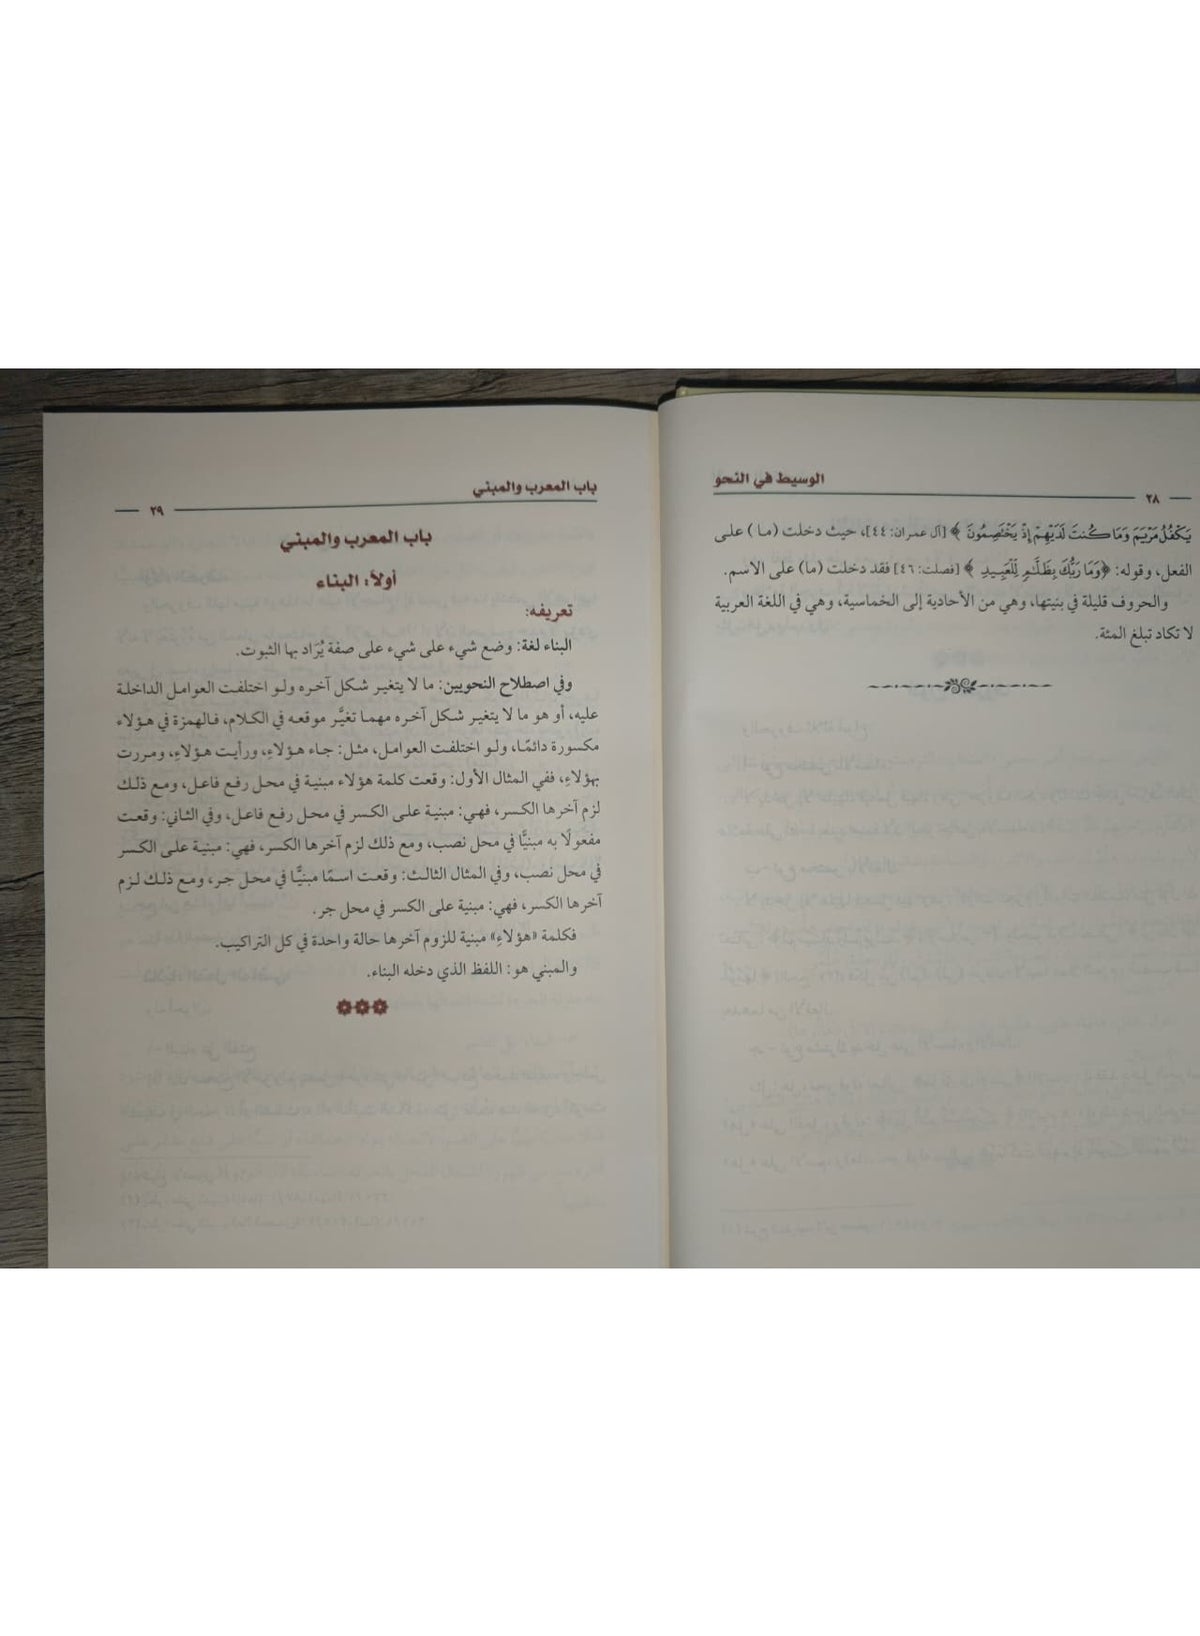 الوسيط في النحو
٢٨
يَكْفُلُ مَرْيَمَ وَمَا كُنتَ لَدَيْهِمْ إِذْ يَخْتَصِمُونَ ﴾ [آل عمران: ٤٤]، حيث دخلت (ما) على
الفعل، وقوله: ﴿وَمَا رَبُّكَ بِظَلَّٰمٍ لِّلْعَبِيدِ ﴾ [فصلت: ٤٦] فقد دخلت (ما) على الاسم.
والحروف قليلة في بنيتها، وهي من الأحادية إلى الخماسية، وهي في اللغة العربية
لا تكاد تبلغ المئة.
باب المعرب والمبني
٢٩
باب المعرب والمبني
أولاً: البناء
تعريفه:
البناء لغة: وضع شيء على شيء على صفة يُرَاد بها الثبوت.
وفي اصطلاح النحويين: ما لا يتغير شكل آخره ولو اختلفت العوامل الداخلة
عليه، أو هو ما لا يتغير شكل آخره مهما تغيَّر موقعه في الكلام، فالهمزة في هؤلاء
مكسورة دائمًا، ولو اختلفت العوامل، مثل: جاء هؤلاءِ، ورأيت هؤلاءِ، ومررت
بهؤلاءِ، ففي المثال الأول: وقعت كلمة هؤلاء مبنية في محل رفع فاعل، ومع ذلك
لزم آخرها الكسر، فهي: مبنية على الكسر في محل رفع فاعل، وفي الثاني: وقعت
مفعولًا به مبنيًّا في محل نصب، ومع ذلك لزم آخرها الكسر، فهي: مبنية على الكسر
في محل نصب، وفي المثال الثالث: وقعت اسمًا مبنيًّا في محل جر، ومع ذلك لزم
آخرها الكسر، فهي: مبنية على الكسر في محل جر.
فكلمة «هؤلاءِ» مبنية للزوم آخرها حالة واحدة في كل التراكيب.
والمبني هو: اللفظ الذي دخله البناء.